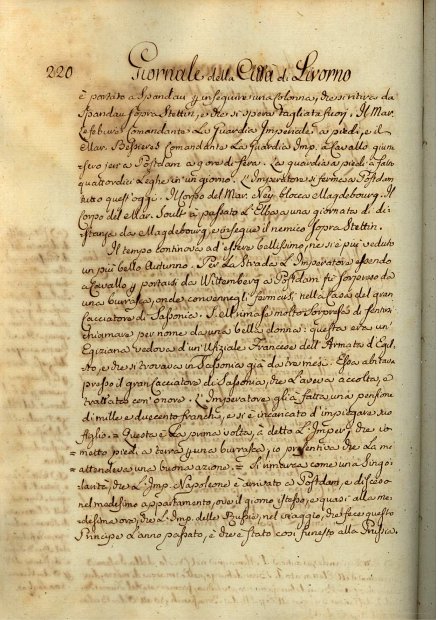 220 Giornale della Città di Livorno
è portato a Spandau p inseguire una Colonna, che si ritirava da
Spandau sopra Stettin, e che si spera tagliata fuori. Il Mar.
Lefebure Comandante La Guardia Imperiale a piedi, e il
Mar. Bessieres Comandante La Guardia Imp. a Cavallo giun
sero jeri a Postdam a 9 ore di sera. La guardia a piedi à fatto
quattordici Leghe in un giorno. L'Imperatore si ferma a Postdam
tutto quest'oggi. Il Corpo del Mar. Ney blocca Magdebourg. Il
Corpo del Mar. Soult à passato L'Elba a una giornata di di-
stanza da Magdebourg, e insegue il nemico sopra Stettin.
Il tempo continova ad essere bellissimo, nè si è più veduto
un più bello Autunno. Per La Strada L'Imperatore essendo
a Cavallo p portarsi da Wittemberg a Postdam fù sorpreso da
una burrasca, onde convennegli fermarsi nella Casa del gran
Cacciatore di Sassonia. S. M. rimase molto sorpreso di sentirsi
chiamare per nome da una bella donna: questa era un'
Egiziana Vedova d'un Ufiziale Francese dell'Armata d'Egit
to, e che si trovava in Sassonia già da tre mesi. Essa abitava
presso il gran Cacciatore di Sassonia, che L'aveva accolta, e
trattata con onore. L'Imperatore gli à fatta una pensione
di mille e duecento franchi, e si è incaricato d'impiegare suo
figlio. = Questa è La prima volta, à detto L'Imper., che io
metto piedi a terra p una burrasca, io presentiva che La mi
attendeva una buona azione. = Si rimarca come una Singo
larità, che L'Imp. Napoleone è arrivato a Postdam, e disceso
nel medesimo appartamento, ove il giorno istesso, e quasi alla me-
desima ora, che L'Imp. delle Russie, nel viaggio, che fece questo
Principe L'anno passato, e che è stato così funesto alla Prussia.